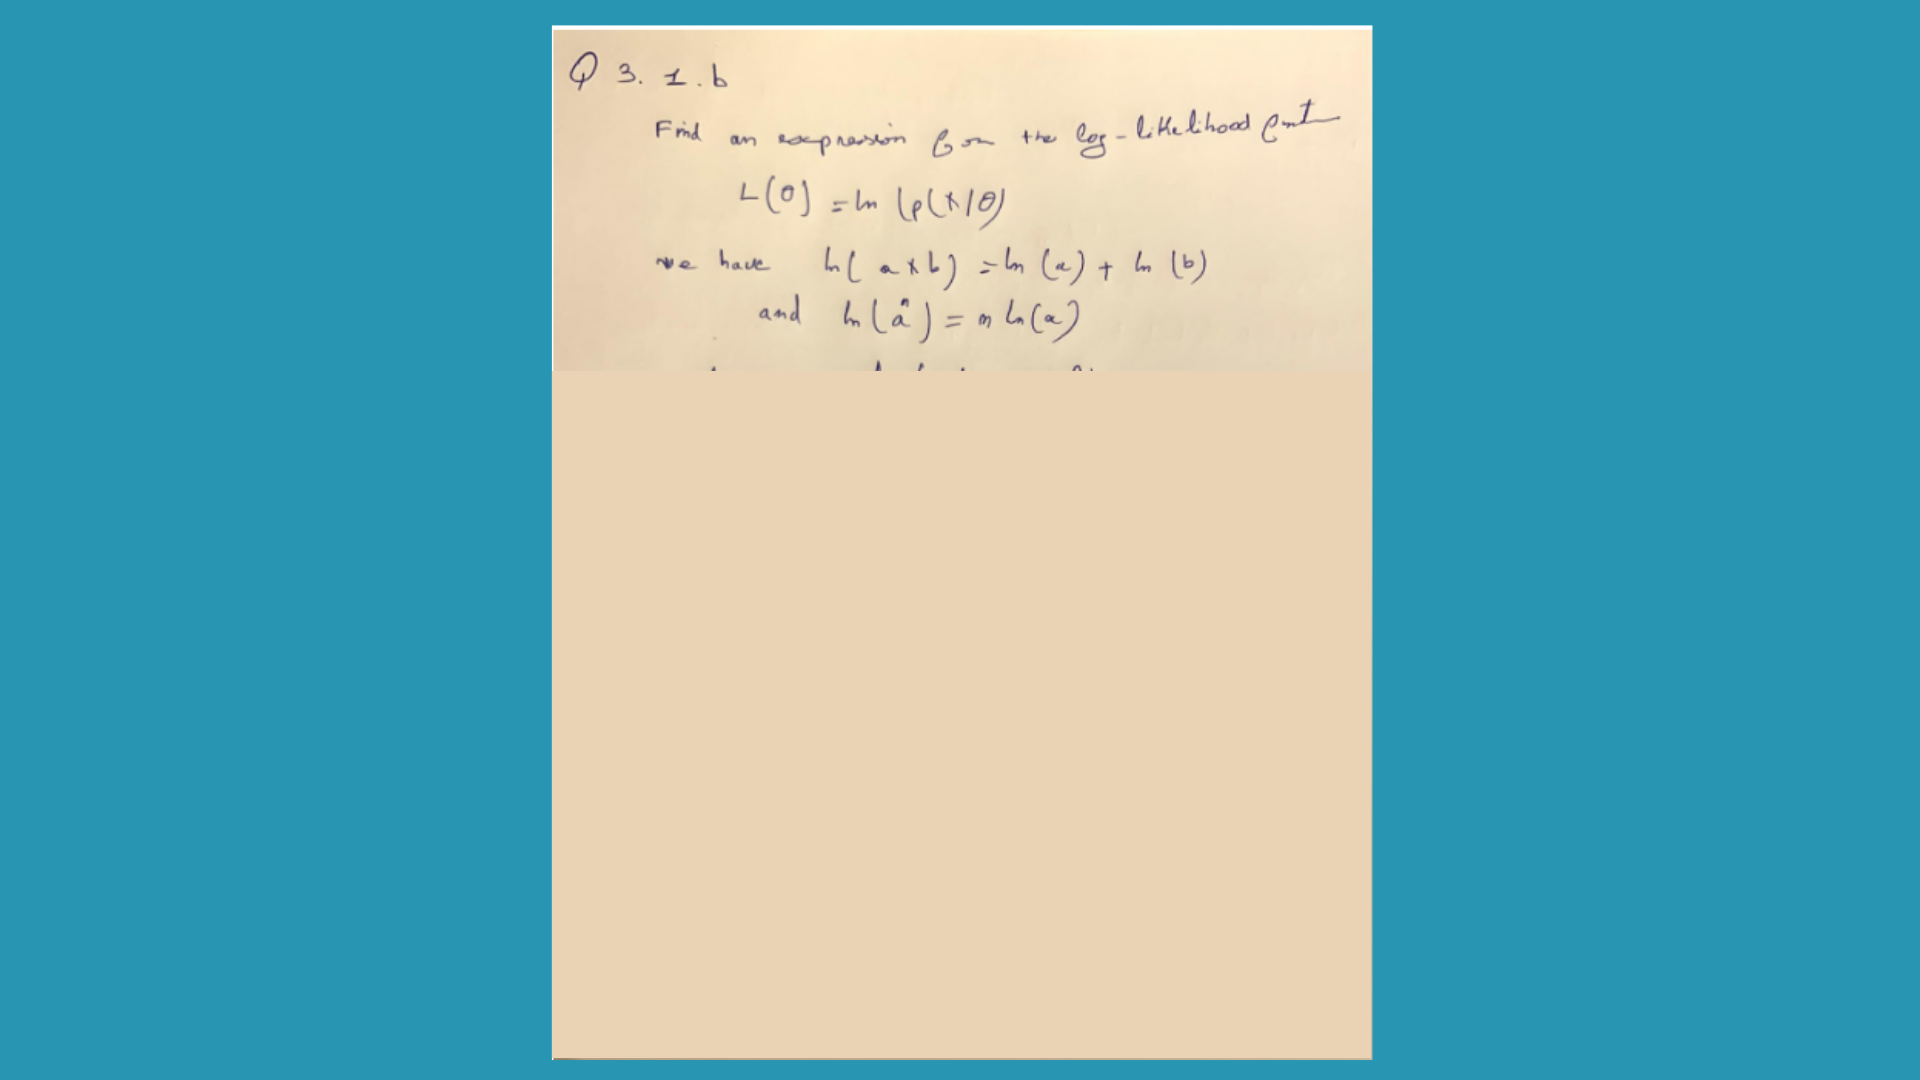 Q 3. 1. b
Find an expression for the log-likelihood
L(θ) = ln (p(x/θ)
we have ln( a x b) = ln (a) + ln (b)
and ln(aⁿ) = n ln(a)